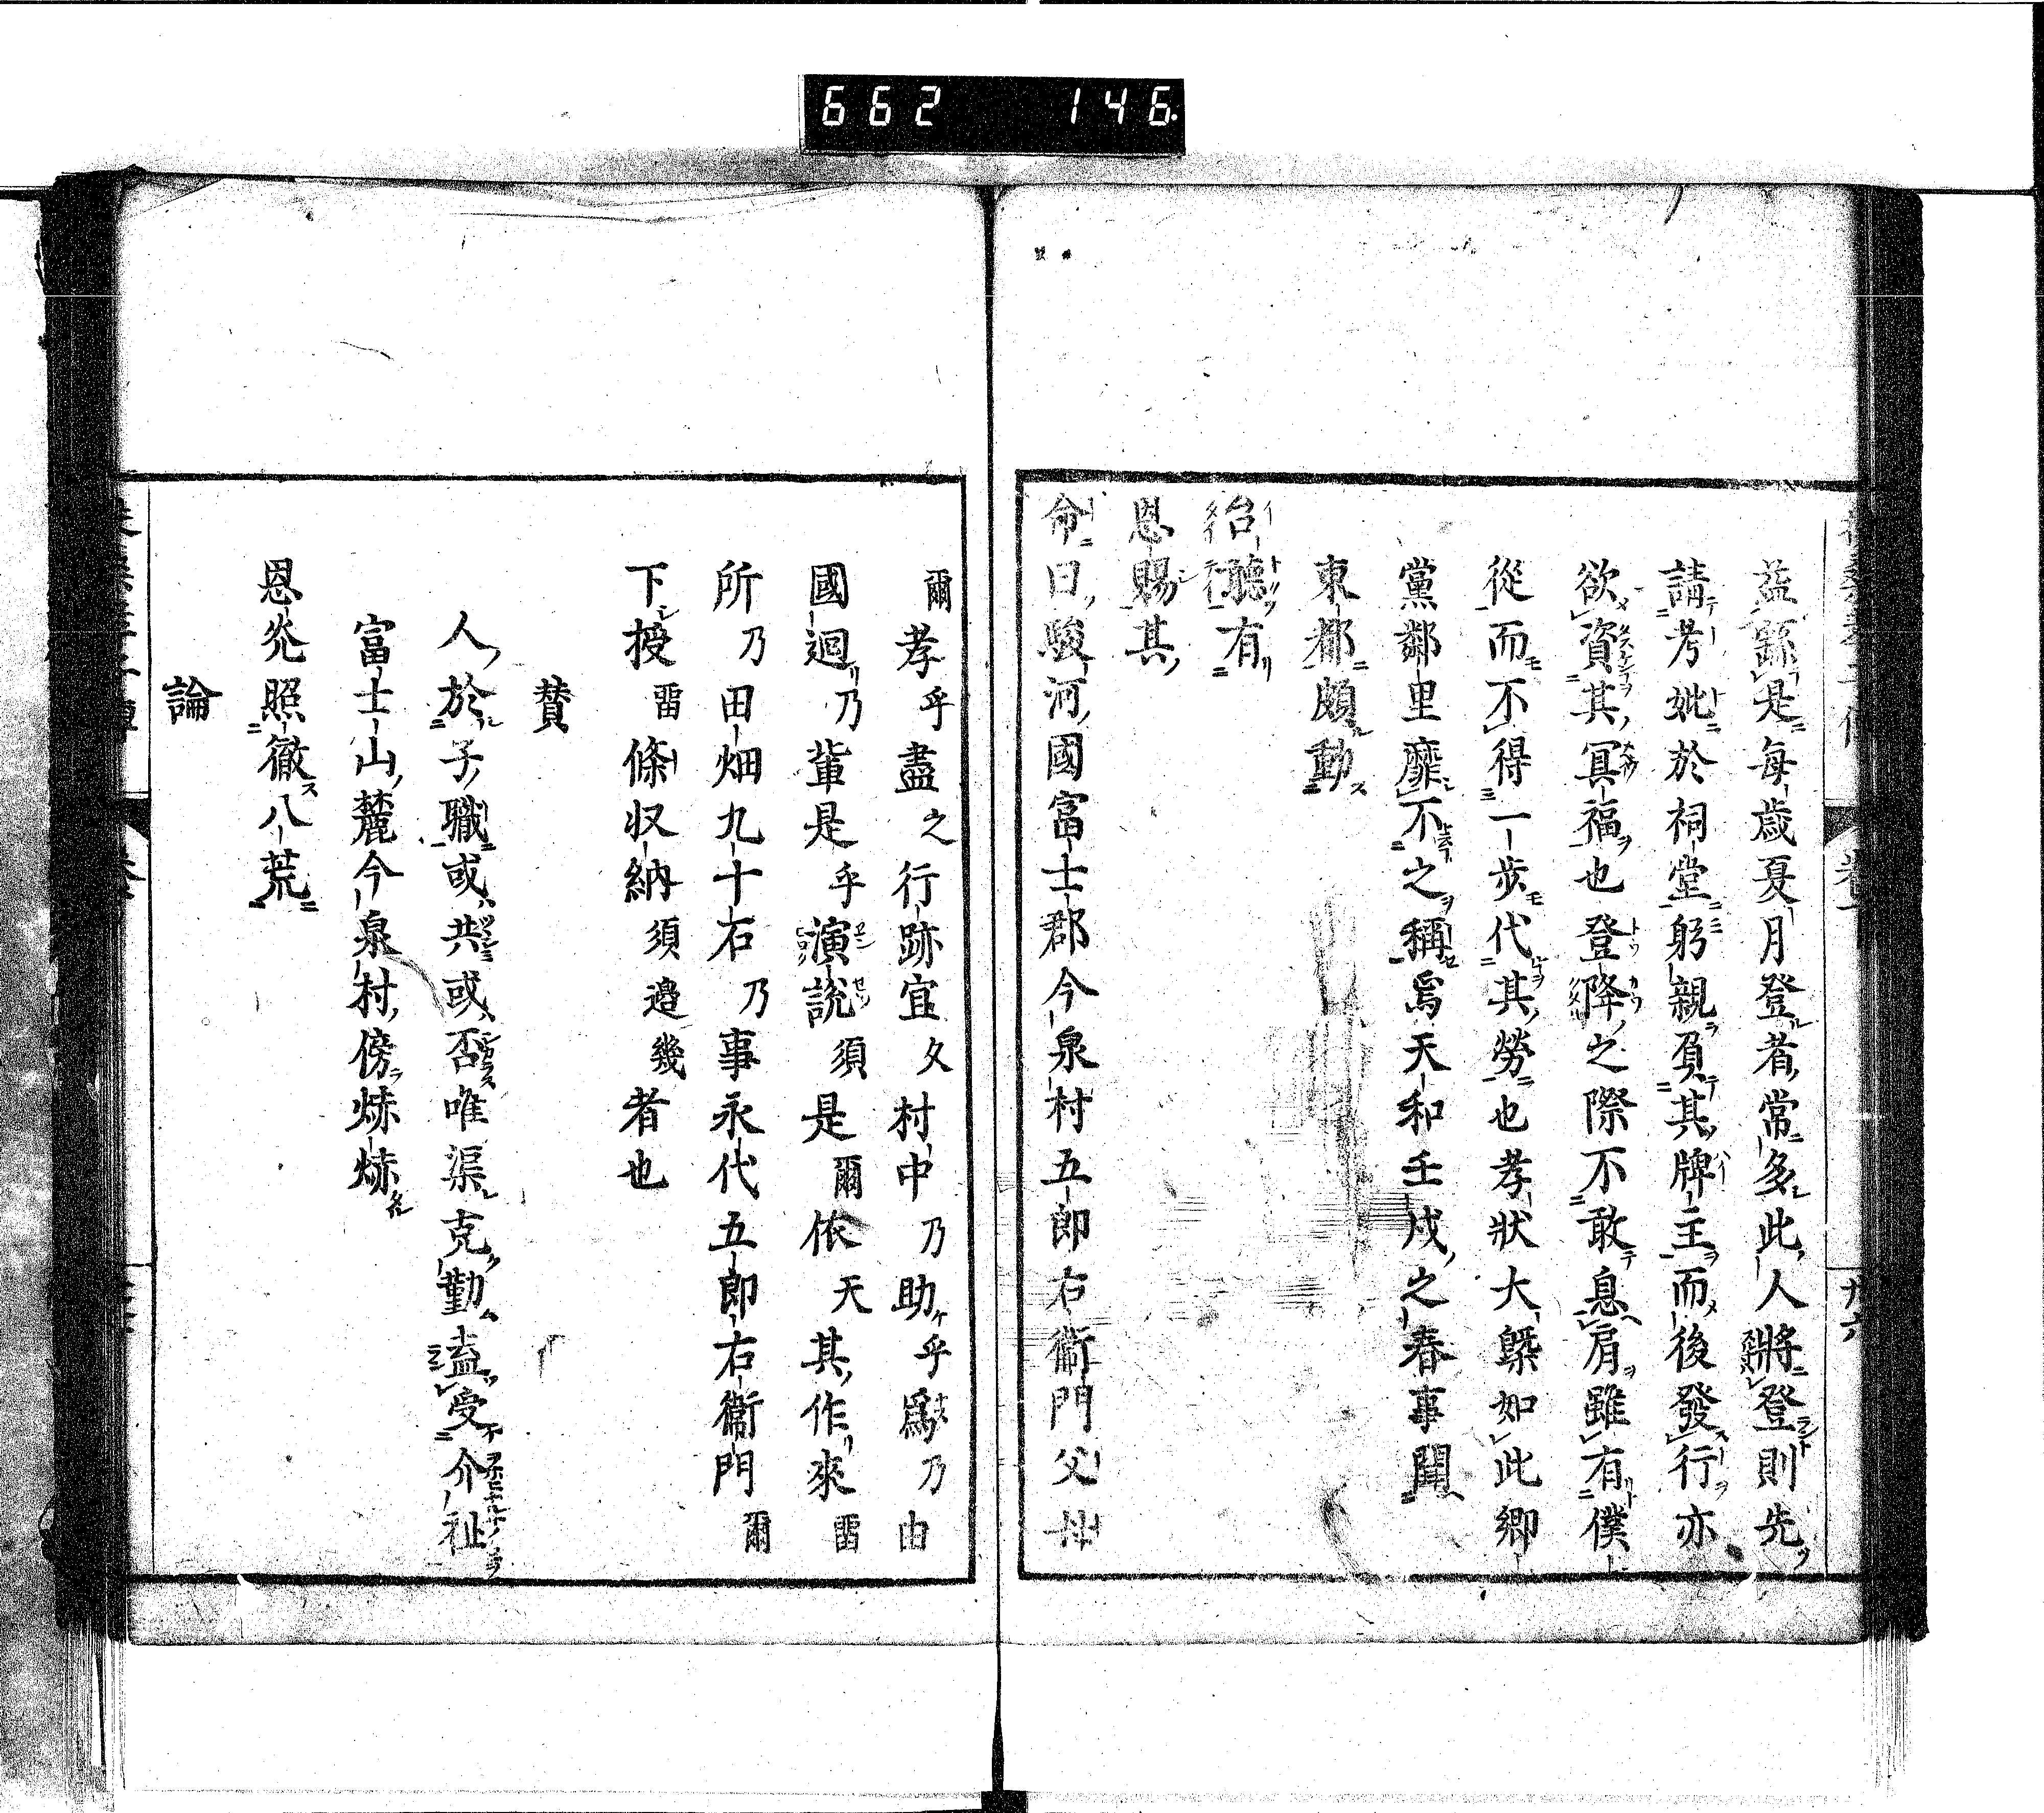 662 146
益繇是每歳夏月登者常多此人將登則先
請考妣於祠堂躬親負其牌主而後發行亦
欲資其冥福也登降之際不敢息肩雖有僕
從而不得一歩代其勞也孝狀大槩如此鄉
黨鄰里靡不之稱焉天和壬戌之春事聞
東都頗動
台聽有
恩賜其
命曰駿河國富士郡今泉村五郎右衞門父母
爾孝乎盡之行跡宜久村中乃助乎爲乃由
國迴乃輩是乎演說須是爾依天其作來畱
所乃田畑九十石乃事永代五郎右衞門爾
下授畱條収納須邉幾者也
賛
人於子職或共或否唯渠克勤盍受介祉
富士山麓今泉村傍㷀㷀
恩光照徹八荒
論
廿六